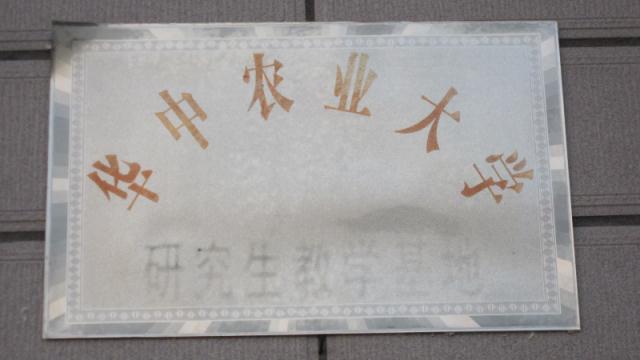 华中农业大学
研究生教学基地